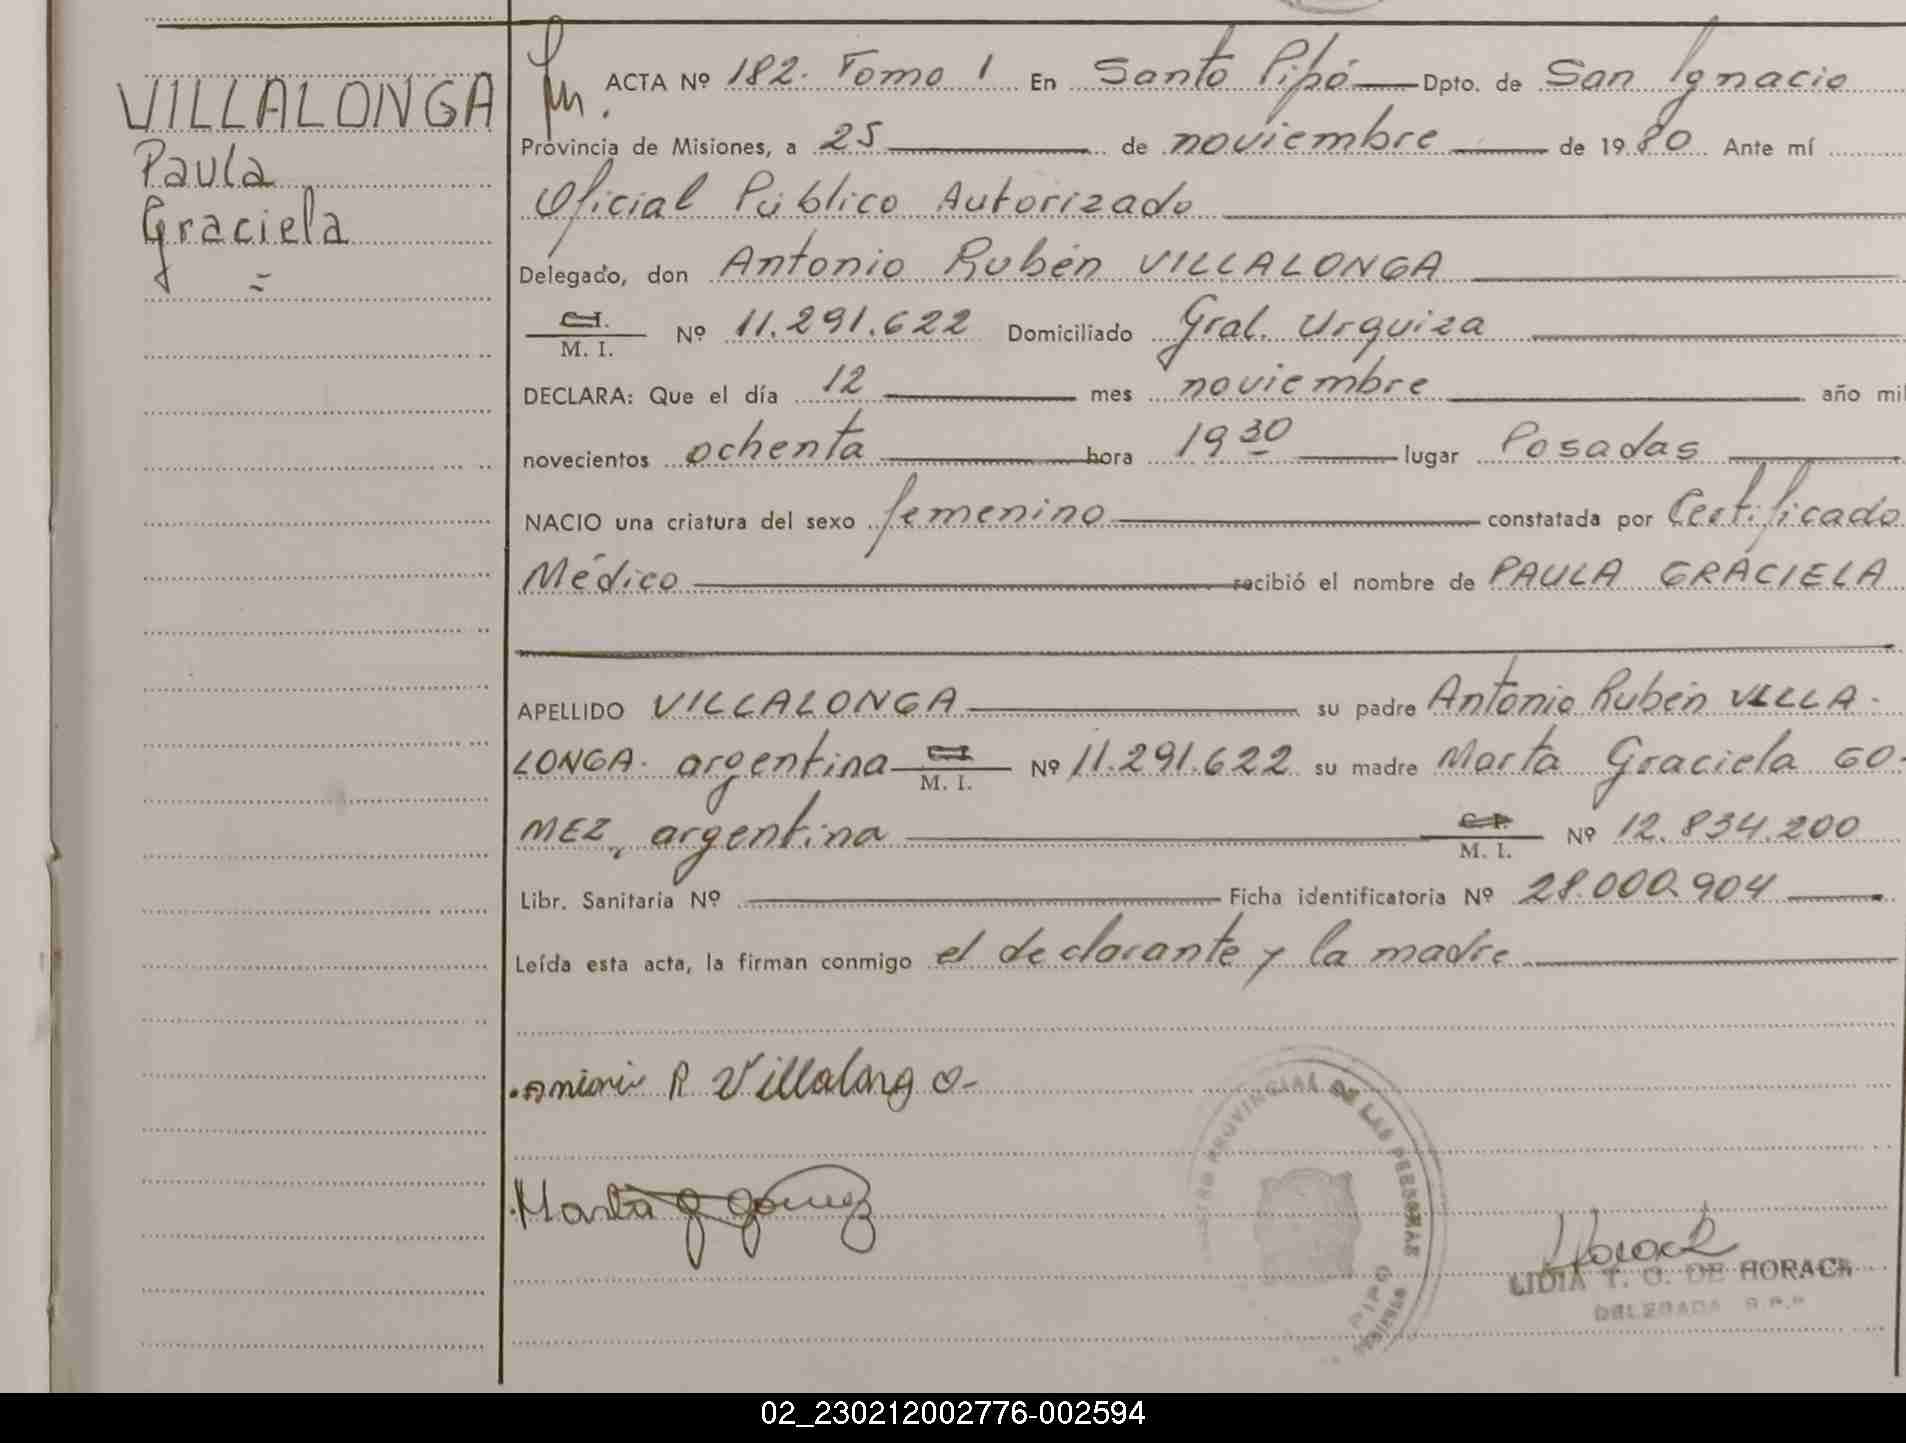 VILLALONGA
Paula
Graciela
=
ACTA Nº 182. Tomo 1 En Santo Pipó Dpto. de San Ignacio
Provincia de Misiones, a 25 de noviembre de 1980 Ante mí
Oficial Público Autorizado
Delegado, don Antonio Rubén VILLALONGA
C. I.
M. I. Nº 11.291.622 Domiciliado Gral. Urquiza
DECLARA: Que el día 12 mes noviembre año mil
novecientos ochenta hora 19 30 lugar Posadas
NACIO una criatura del sexo femenino constatada por Certificado
Médico recibió el nombre de PAULA GRACIELA
APELLIDO VILLALONGA su padre Antonio Rubén VILLA-
LONGA. argentina M. I. Nº 11.291.622 su madre Marta Graciela GO-
MEZ, argentina M. I. Nº 12.834.200
Libr. Sanitaria Nº Ficha identificatoria Nº 28.000.904
Leída esta acta, la firman conmigo el declarante y la madre
R Villalonga-
PROVINCIAL DE LAS PERSONAS
Marta G Gómez
Horack
LIDIA T. G. DE HORACK
DELEGADA R.P.P
02_230212002776-002594